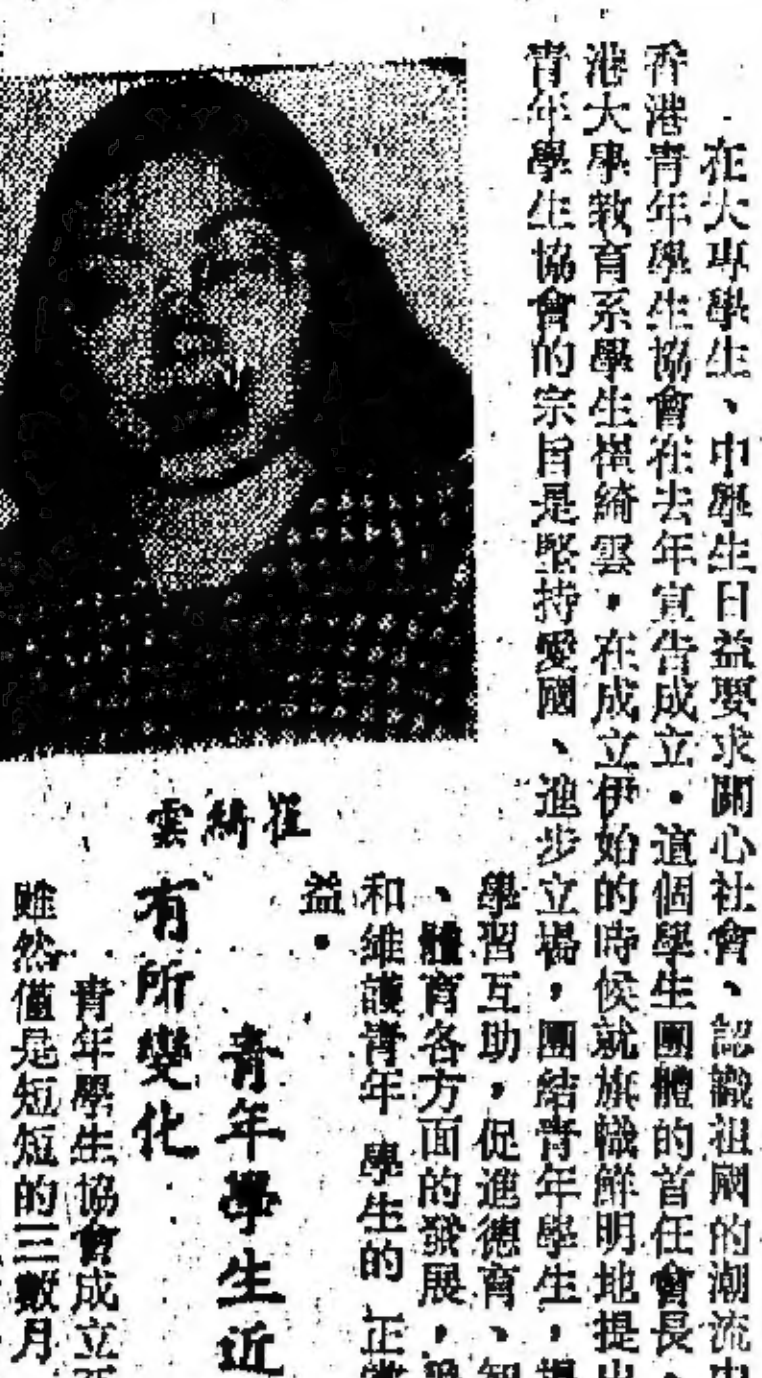 在大專學生、中學生日益要求關心社會、認識祖國的潮流中
香港青年學生協會在去年宣告成立。這個學生團體的首任會長、
港大學教育系學生崔綺雲,在成立伊始的時候就旗幟鮮明地提出
青年學生協會的宗旨是堅持愛國、進步立場,團結青年學生,提
學習互助,促進德育、知
、體育各方面的發展,
和維護青年學生的正當
益。
崔綺雲
青年學生近
有所變化
青年學生協會成立至
雖然僅是短短的三數月